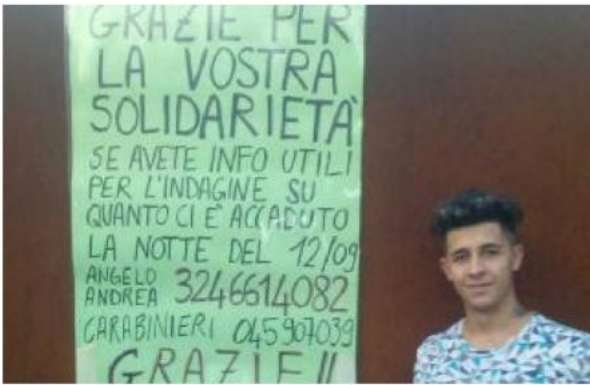 GRAZIE PER
LA VOSTRA
SOLIDARIETÀ
SE AVETE INFO UTILI
PER L'INDAGINE SU
QUANTO CI È ACCADUTO
LA NOTTE DEL 12/09
ANGELO
ANDREA 3246614082
CARABINIERI 045907039
GRAZIE!!